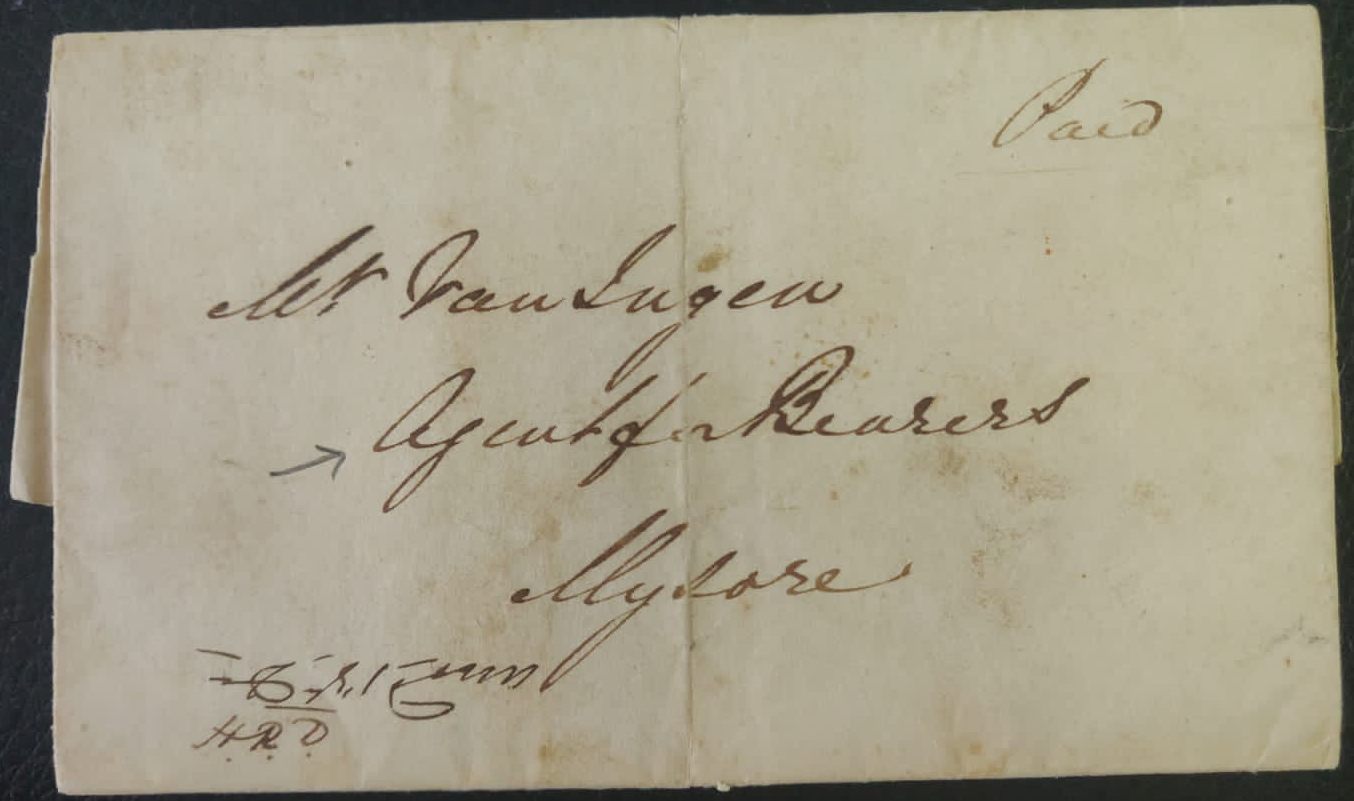 Paid
Mr Van Ingen
Agent for Bearers
Mysore
H.R.D.